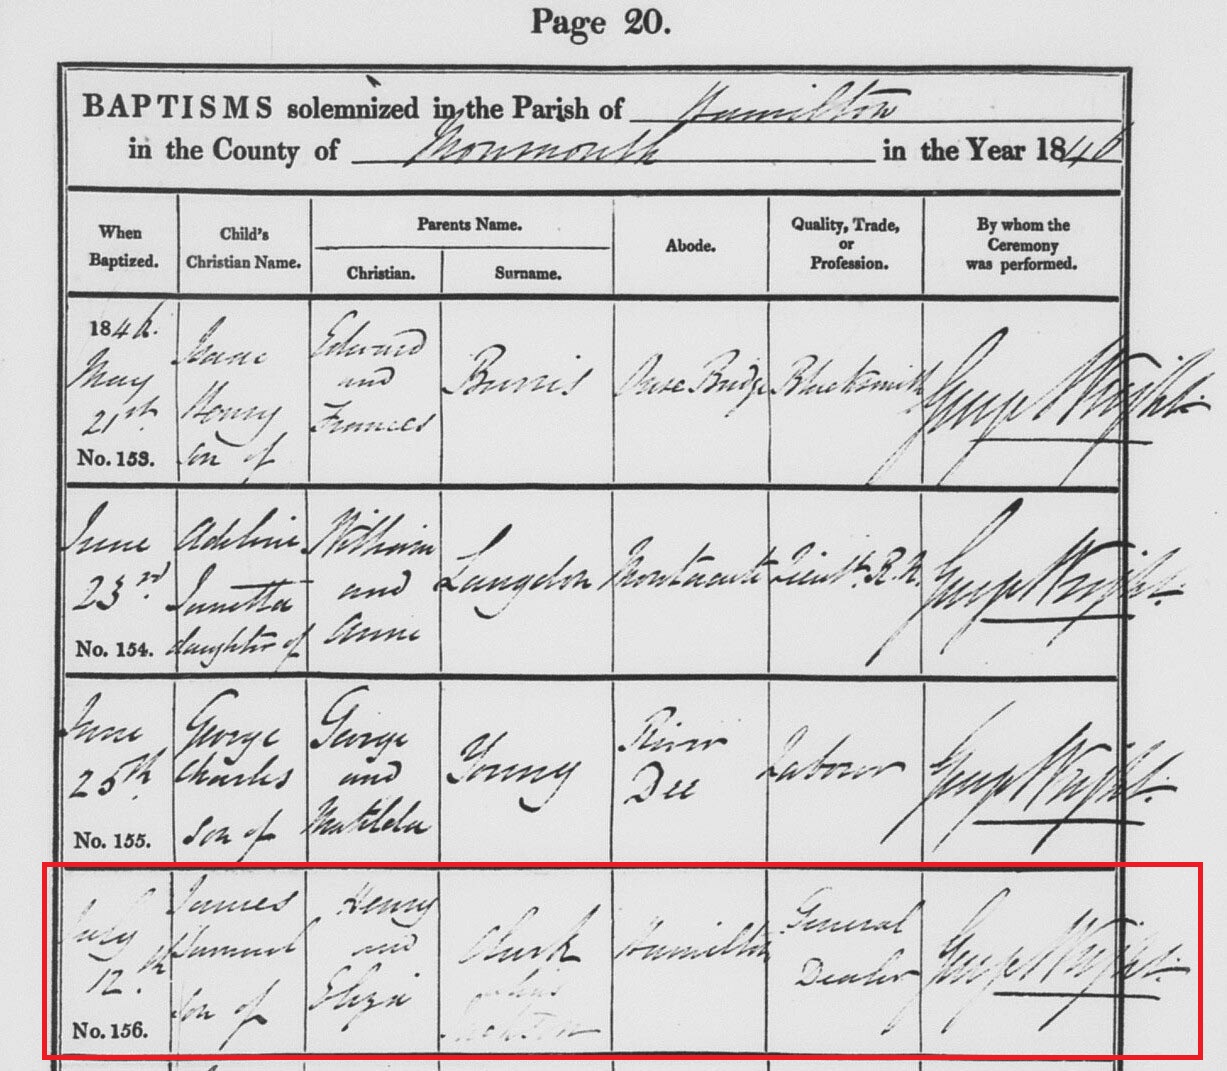 Page 20.
BAPTISMS solemnized in the Parish of Hamilton
in the County of Monmouth in the Year 1846
When Baptized.
Child's Christian Name.
Parents Name.
Christian.
Surname.
Abode.
Quality, Trade, or Profession.
By whom the Ceremony was performed.
1846.
May
21st
No. 153.
Isaac
Henry
Son of
Edward
and
Frances
Burris
Ouse Bridge
Blacksmith
George Wright.
June
23rd
No. 154.
Adeline
daughter of
William
and
Anne
Langdon
Montacute
Lieut. R.N.
George Wright.
June
25th
No. 155.
George
Charles
Son of
George
and
Matilda
Young
River
Dee
Labourer
George Wright.
July
12th
No. 156.
James
Samuel
Son of
Henry
and
Eliza
Clark
Hamilton
General
Dealer
George Wright.